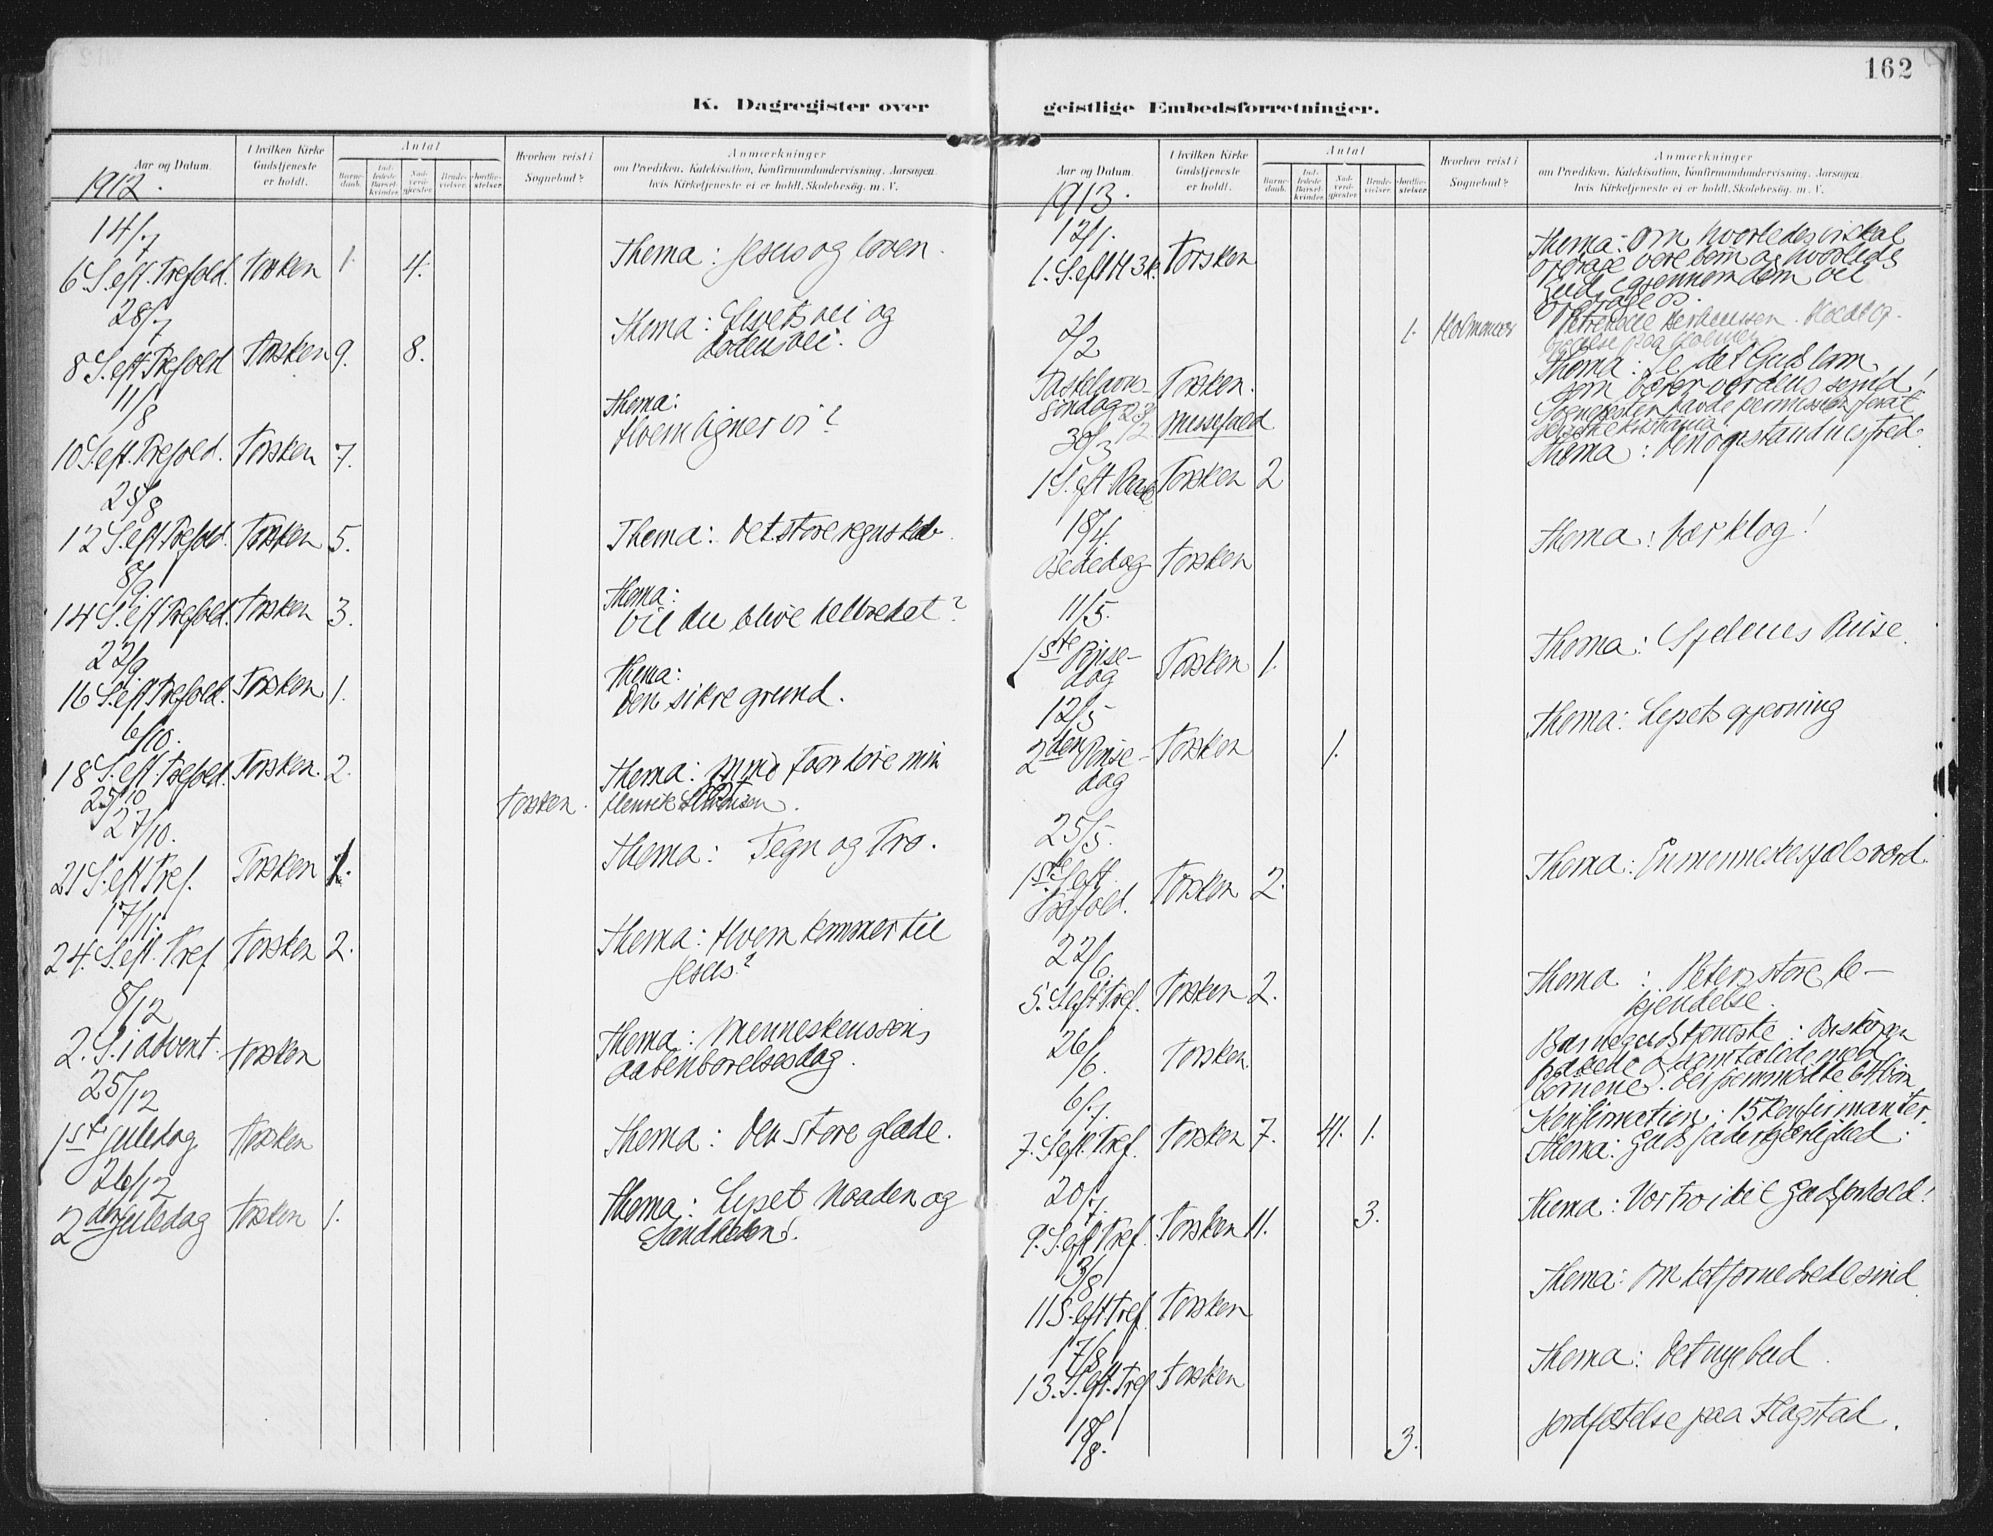 162
K. Dagregister over
geistlige Embedsforretninger.
Aar og Datum.
I hvilken Kirke
Gudstjeneste
er holdt.
Antal
Barne-
daab.
Ind-
ledede
Barsel-
kvinder.
Nad-
verd-
gjester.
Brude-
vielser.
Jordfæ-
stelser.
Hvorhen reist i
Sognebud?
Anmærkninger
om Prædiken, Katekisation, Konfirmandundervisning. Aarsagen
hvis Kirketjeneste ei er holdt. Skolebesøg. m. V.
1912.
14/7
6 S. eft. Trefold. Torsken 1. 4. Thema: Jesus og loven.
28/7
8 S. eft Trefold Torsken 9. 8. Thema: Livets vei og
dødens vei.
11/8
10 S. eft. Trefold. Torsken 7. Thema:
Hvem ligner vi?
25/8
12 S. eft Trefold. Torsken 5. Thema: Det store regnskab.
8/9
14 S. eft Trefold. Torsken 3. Thema:
Vil du blive helbredet?
22/9
16 S. eft Trefold. Torsken 1. Thema:
Den sikre grund.
6/10.
18 S. eft. Trefold. Torsken. 2. Thema:
25/10 Torsken. Henrik
27/10.
21 S. eft Tref. Torsken 1. Thema: Tegn og Tro.
17/11.
24. S. eft. Tref. Torsken 2. Thema: Hvem kommer til
Jesus?
8/12
2. S. i advent. Torsken Thema: Menneskenssøns
aabenbarelsesdag.
25/12
1ste Juledag Torsken Thema: Den store glæde.
26/12
2den Juledag Torsken 1. Thema: Lyset Naaden og
Sandheden!
Aar og Datum.
I hvilken Kirke
Gudstjeneste
er holdt.
Antal
Barne-
daab.
Ind-
ledede
Barsel-
kvinder.
Nad-
verd-
gjester.
Brude-
vielser.
Jordfæ-
stelser.
Hvorhen reist i
Sognebud?
Anmærkninger
om Prædiken, Katekisation, Konfirmandundervisning. Aarsagen
hvis Kirketjeneste ei er holdt. Skolebesøg. m. V.
1913.
12/1.
1. S. eft H 3 k. Torsken Thema: Om hvorledes vi skal
opdrage vore børn og hvorledes
Gud gjennem dem vil
opdrage os.
2/2 1. Holmenvær
paa Holmen
Fastelavns-
søndag Torsken. Thema: Se det Guds lam
som bærer verdens synd!
23/2 Messefald Sognepresten havde permission for at
30/3
1 S. eft Paask Torsken 2 Thema: Den opstandnes fred.
18/4.
Bededag Torsken Thema: Vær klog!
11/5.
1ste Pinse-
dag Torsken 1. Thema: Sjelenes Pinse.
12/5
2den Pinse-
dag Torsken 1. Thema: Lysets gjerning
25/5.
1ste S. eft.
Trefold. Torsken 2. Thema: En menneskesjæls værd.
22/6.
5. S. eft Tref. Torsken 2. Thema: Peters store be-
kjendelse.
26/6. Torsken. Barnegudstjeneste: Biskoppen
talede og samtalede med
børnene. Der fremmødte 64 børn
6/7.
7. S. eft. Tref. Torsken 7. 41. 1. Konfirmation: 15 konfirmanter.
Thema: Guds faderkjærlighed.
20/7.
9. S. eft Tref. Torsken 11. 3. Thema: Vor tro i det Gudsforhold!
3/8
11 S. eft Tref. Torsken Thema: Om det fornedrede sind
17/8
13. S. eft. Tref Torsken Thema: Det nye bud.
18/8. 3. Jordfæstelse paa Flagstad.